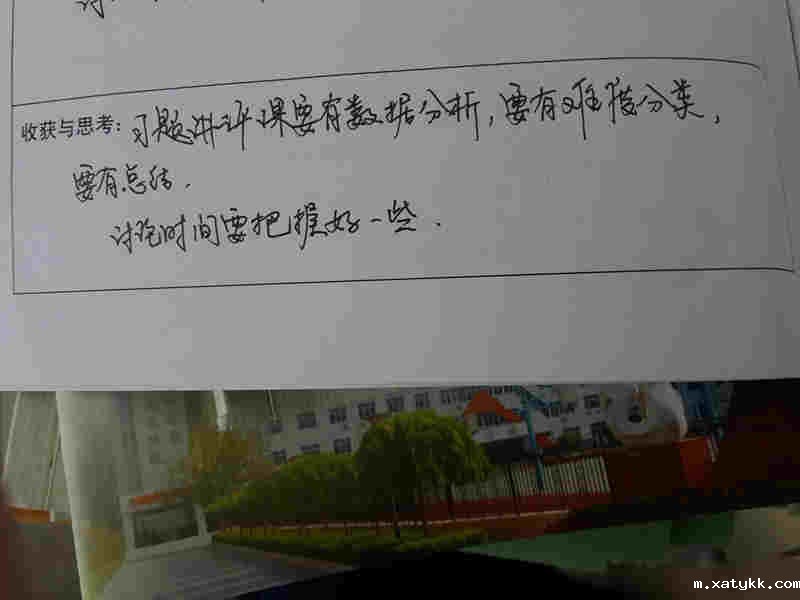 收获与思考：习题讲评课要有数据分析，要有难错分类，
要有总结．
讨论时间要把握好一些．
m.xatykk.com